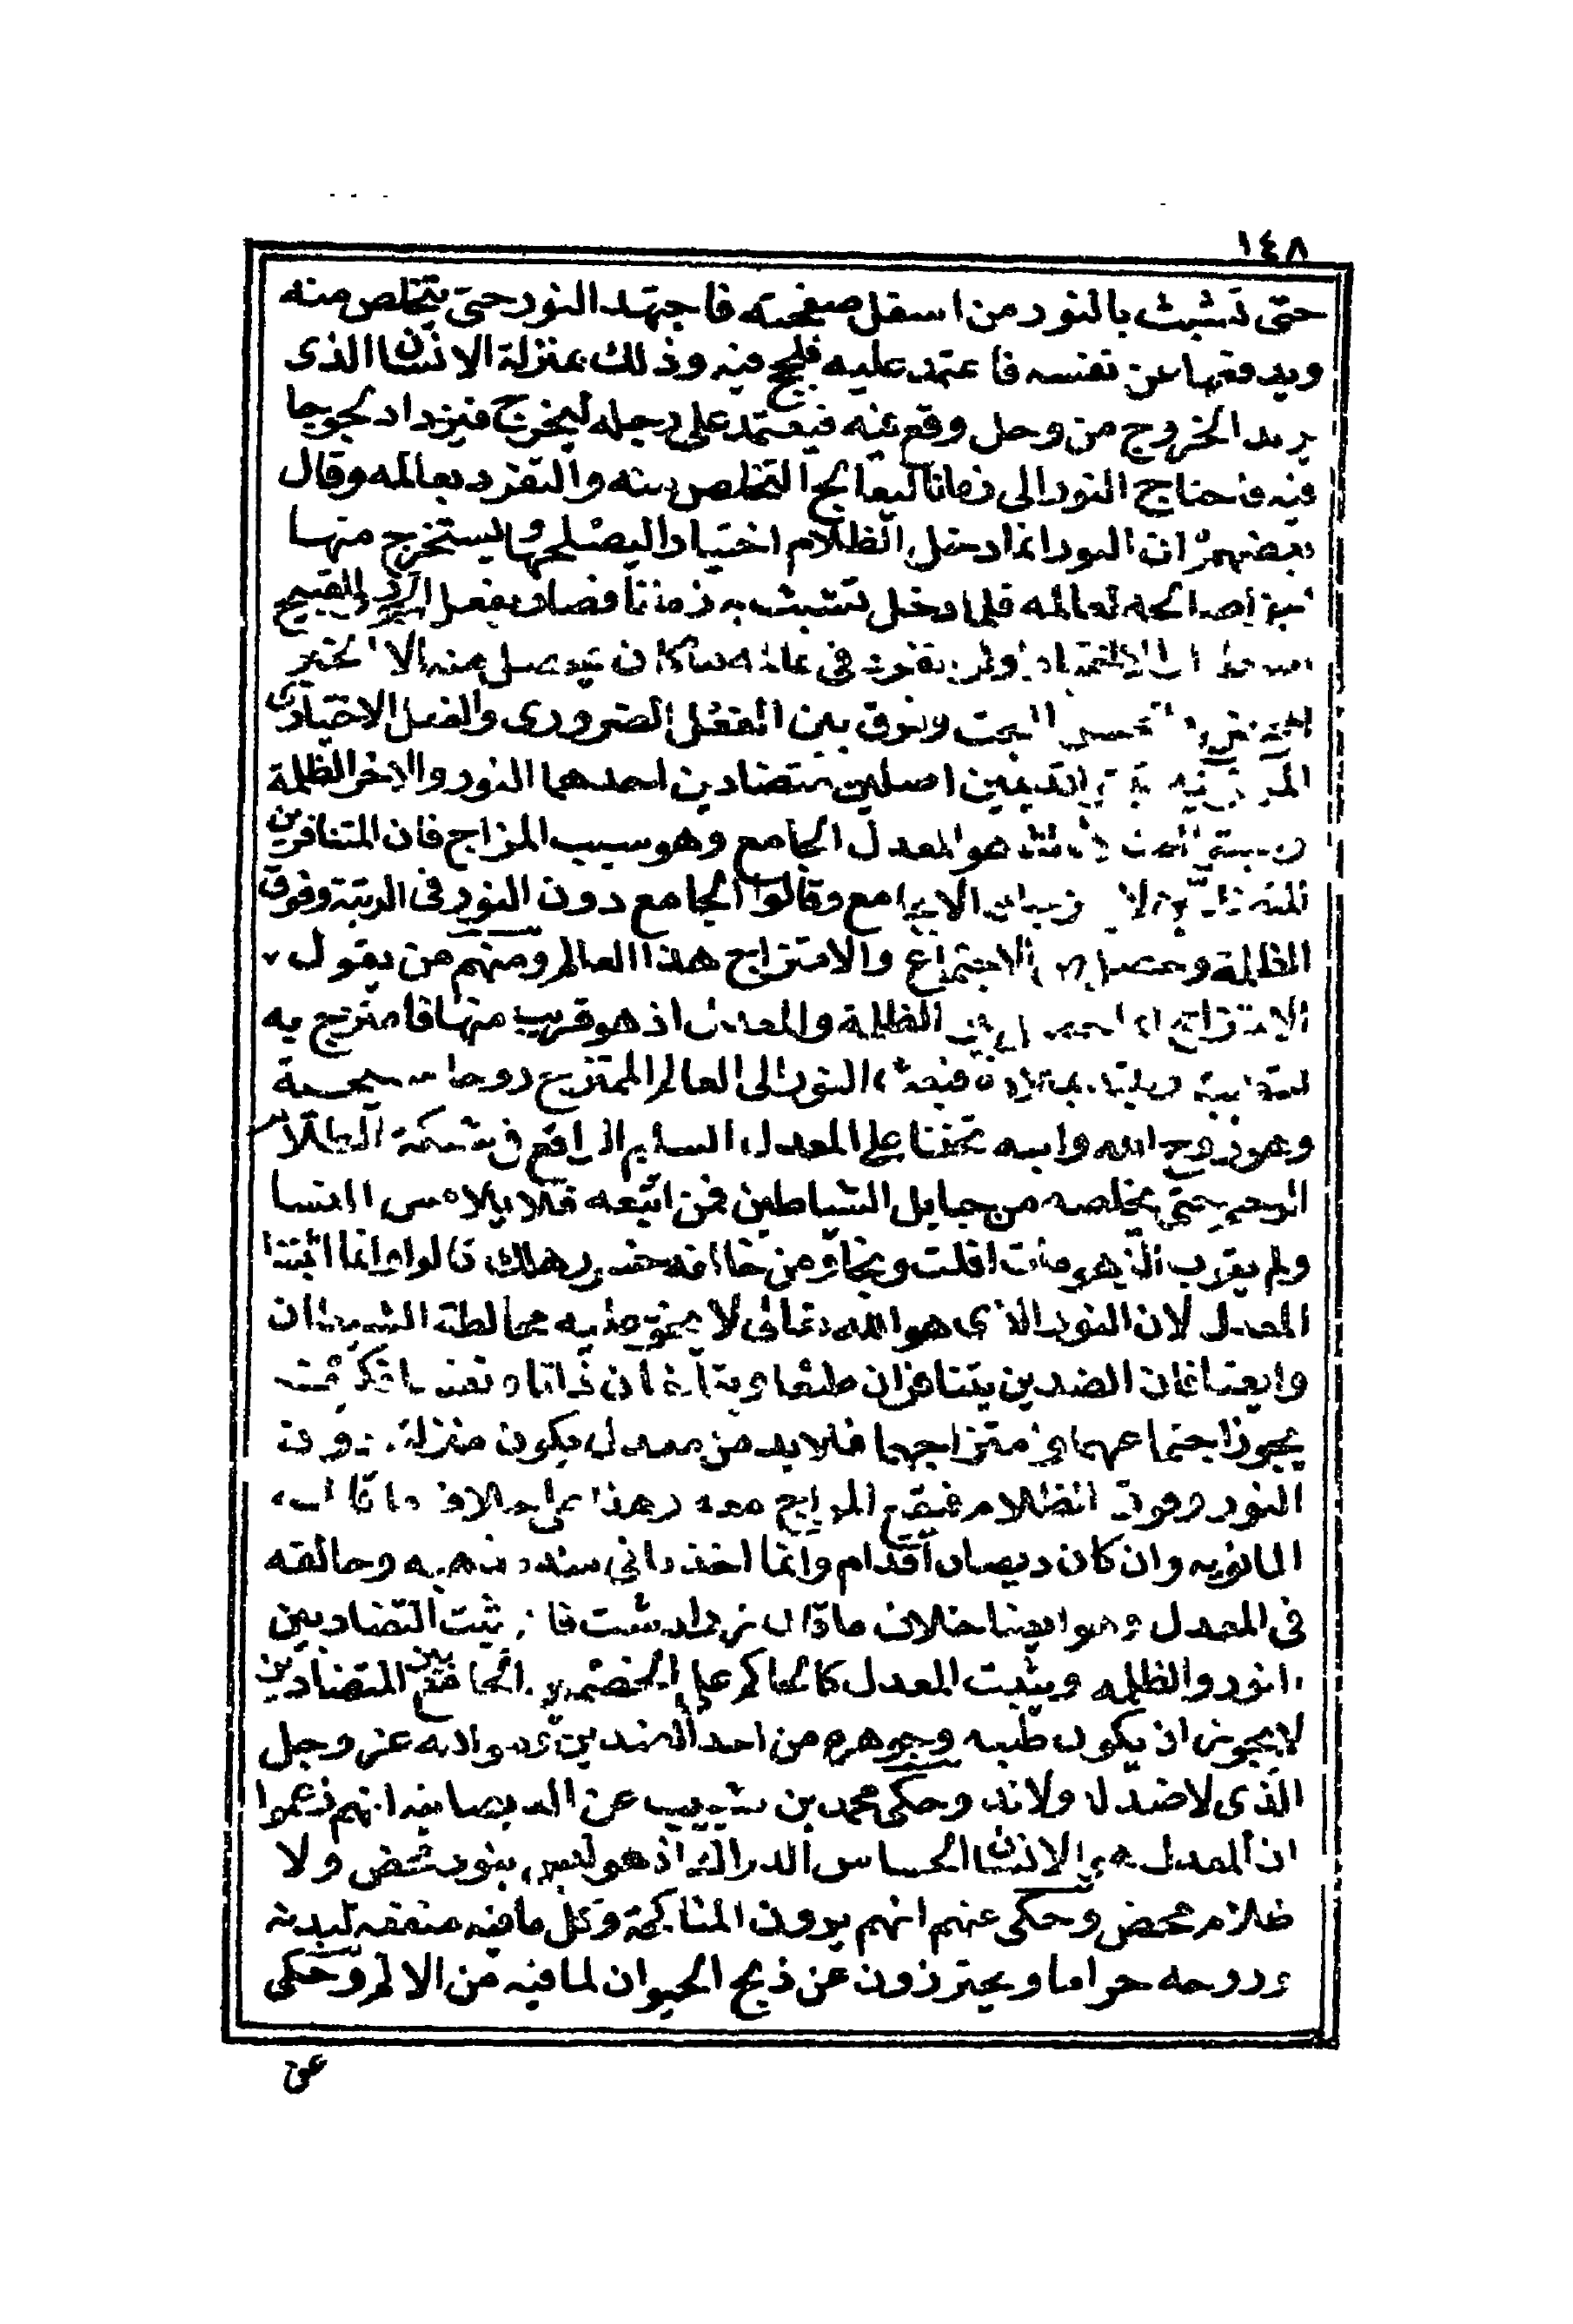 ١٤٨
حتى تشبث بالنور من اسفل صفحته فاجتهد النور حتى يتخلص منه
ويدفعها عن نفسه فاعتمد عليه فلجج فيه وذلك بمنزلة الانسان الذى
يريد الخروج من وحل وقع فيه فيعتمد على رجله ليخرج فيزداد لجوجا
فيه فاحتاج النور الى زمان ليعالج التخلص منه والتفرد بعالمه وقال
بعضهم ان النور انما دخل الظلام اختيارا ليصلحها ويستخرج منها
اجزاء صالحه لعالمه فلما دخل تشبث به زمانا فصار يفعل الجور والقبيح
اضطرارا لا اختيارا ولو انفرد فى عالمه ما كان يحصل منه الا الخير
المحض والحسن البحت وفرق بين الفعل الضرورى والفعل الاختيارى
المرقونيه اثبتوا قديمين اصلين متضادين احدهما النور والاخر الظلمة
واثبتوا اصلا ثالثا هو المعدل الجامع وهو سبب المزاج فان المتنافرين
المتضادين لا يمتزجان الا بجامع وقالوا الجامع دون النور فى الرتبة وفوق
الظلمة وحصل من الاجتماع والامتزاج هذا العالم ومنهم من يقول
الامتزاج انما حصل بين الظلمة والمعدل اذ هو قريب منها فامتزج به
لتطيب به وتلتذ بملاذه فبعث النور الى العالم الممتزج روحا مسيحية
وهو روح الله وابنه تحننا على المعدل السليم الواقع فى شبكة الظلام
الرجيم حتى يخلصه من حبايل الشياطين فمن اتبعه فلا يلامس النسا
ولم يقرب الزهومات افلت ونجا ومن خالفه خسر وهلك قالوا وانما اثبتنا
المعدل لان النور الذى هو الله تعالى لا يجوز عليه مخالطة الشيطان
وايضا فان الضدين يتنافران طبعا ويتمانعان ذاتا ونفسا فكيف
يجوز اجتماعهما وامتزاجهما فلا بد من معدل يكون منزلته دون
النور وفوق الظلام فيقع المزاج معه وهذا على خلاف ما قالته
المانويه وان كان ديصان اقدم وانما اخذ مانى منه مذهبه وخالفه
فى المعدل وهو ايضا خلاف ما قال زرادشت فانه يثبت التضاد بين
النور والظلمه ويثبت المعدل كالحاكم على الخصمين الجامع بين المتضادين
لا يجوز ان يكون طبعه وجوهره من احد الضدين وهو الله عز وجل
الذى لا ضد له ولا ند وحكى محمد بن شبيب عن الديصانيه انهم زعموا
ان المعدل هو الانسان الحساس الدراك اذ هو ليس بنور محض ولا
ظلام محض وحكى عنهم انهم يرون المناكحة وكل ما فيه منفعه لبدنه
وروحه حراما ويحترزون عن ذبح الحيوان لما فيه من الالم وحكى
عن